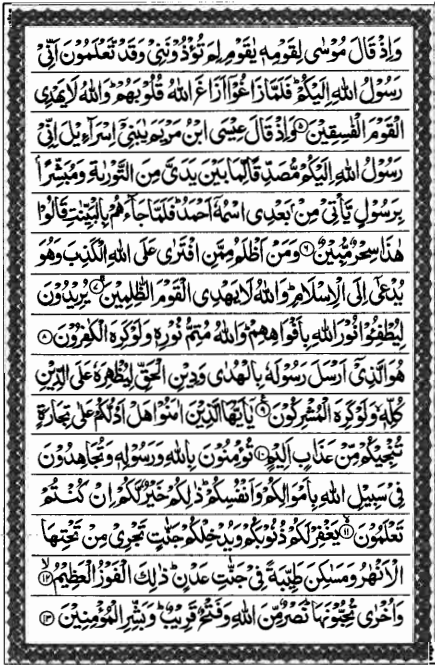 وَاِذْ قَالَ مُوْسٰى لِقَوْمِهٖ يٰقَوْمِ لِمَ تُؤْذُوْنَنِىْ وَقَدْ تَّعْلَمُوْنَ اَنِّىْ
رَسُوْلُ اللّٰهِ اِلَيْكُمْ ؕ فَلَمَّا زَاغُوْۤا اَزَاغَ اللّٰهُ قُلُوْبَهُمْ ؕ وَاللّٰهُ لَا يَهْدِى
الْقَوْمَ الْفٰسِقِيْنَ ۵ وَاِذْ قَالَ عِيْسَى ابْنُ مَرْيَمَ يٰبَنِىْۤ اِسْرَآءِيْلَ اِنِّىْ
رَسُوْلُ اللّٰهِ اِلَيْكُمْ مُّصَدِّقًا لِّمَا بَيْنَ يَدَىَّ مِنَ التَّوْرٰىةِ وَمُبَشِّرًۢا
بِرَسُوْلٍ يَّاْتِىْ مِنْۢ بَعْدِى اسْمُهٗۤ اَحْمَدُ ؕ فَلَمَّا جَآءَهُمْ بِالْبَيِّنٰتِ قَالُوْا
هٰذَا سِحْرٌ مُّبِيْنٌ ۶ وَمَنْ اَظْلَمُ مِمَّنِ افْتَرٰى عَلَى اللّٰهِ الْكَذِبَ وَهُوَ
يُدْعٰۤى اِلَى الْاِسْلَامِ ؕ وَاللّٰهُ لَا يَهْدِى الْقَوْمَ الظّٰلِمِيْنَ ۷ يُرِيْدُوْنَ
لِيُطْفِـُٔوْا نُوْرَ اللّٰهِ بِاَفْوَاهِهِمْ ؕ وَاللّٰهُ مُتِمُّ نُوْرِهٖ وَلَوْ كَرِهَ الْكٰفِرُوْنَ ۸
هُوَ الَّذِىْۤ اَرْسَلَ رَسُوْلَهٗ بِالْهُدٰى وَدِيْنِ الْحَقِّ لِيُظْهِرَهٗ عَلَى الدِّيْنِ
كُلِّهٖ وَلَوْ كَرِهَ الْمُشْرِكُوْنَ ۹ يٰۤاَيُّهَا الَّذِيْنَ اٰمَنُوْا هَلْ اَدُلُّكُمْ عَلٰى تِجَارَةٍ
تُنْجِيْكُمْ مِّنْ عَذَابٍ اَلِيْمٍ ۱۰ تُؤْمِنُوْنَ بِاللّٰهِ وَرَسُوْلِهٖ وَتُجَاهِدُوْنَ
فِىْ سَبِيْلِ اللّٰهِ بِاَمْوَالِكُمْ وَاَنْفُسِكُمْ ؕ ذٰلِكُمْ خَيْرٌ لَّكُمْ اِنْ كُنْتُمْ
تَعْلَمُوْنَ ۱۱ يَغْفِرْ لَكُمْ ذُنُوْبَكُمْ وَيُدْخِلْكُمْ جَنّٰتٍ تَجْرِىْ مِنْ تَحْتِهَا
الْاَنْهٰرُ وَمَسٰكِنَ طَيِّبَةً فِىْ جَنّٰتِ عَدْنٍ ؕ ذٰلِكَ الْفَوْزُ الْعَظِيْمُ ۱۲
وَاُخْرٰى تُحِبُّوْنَهَا ؕ نَصْرٌ مِّنَ اللّٰهِ وَفَتْحٌ قَرِيْبٌ ؕ وَبَشِّرِ الْمُؤْمِنِيْنَ ۱۳